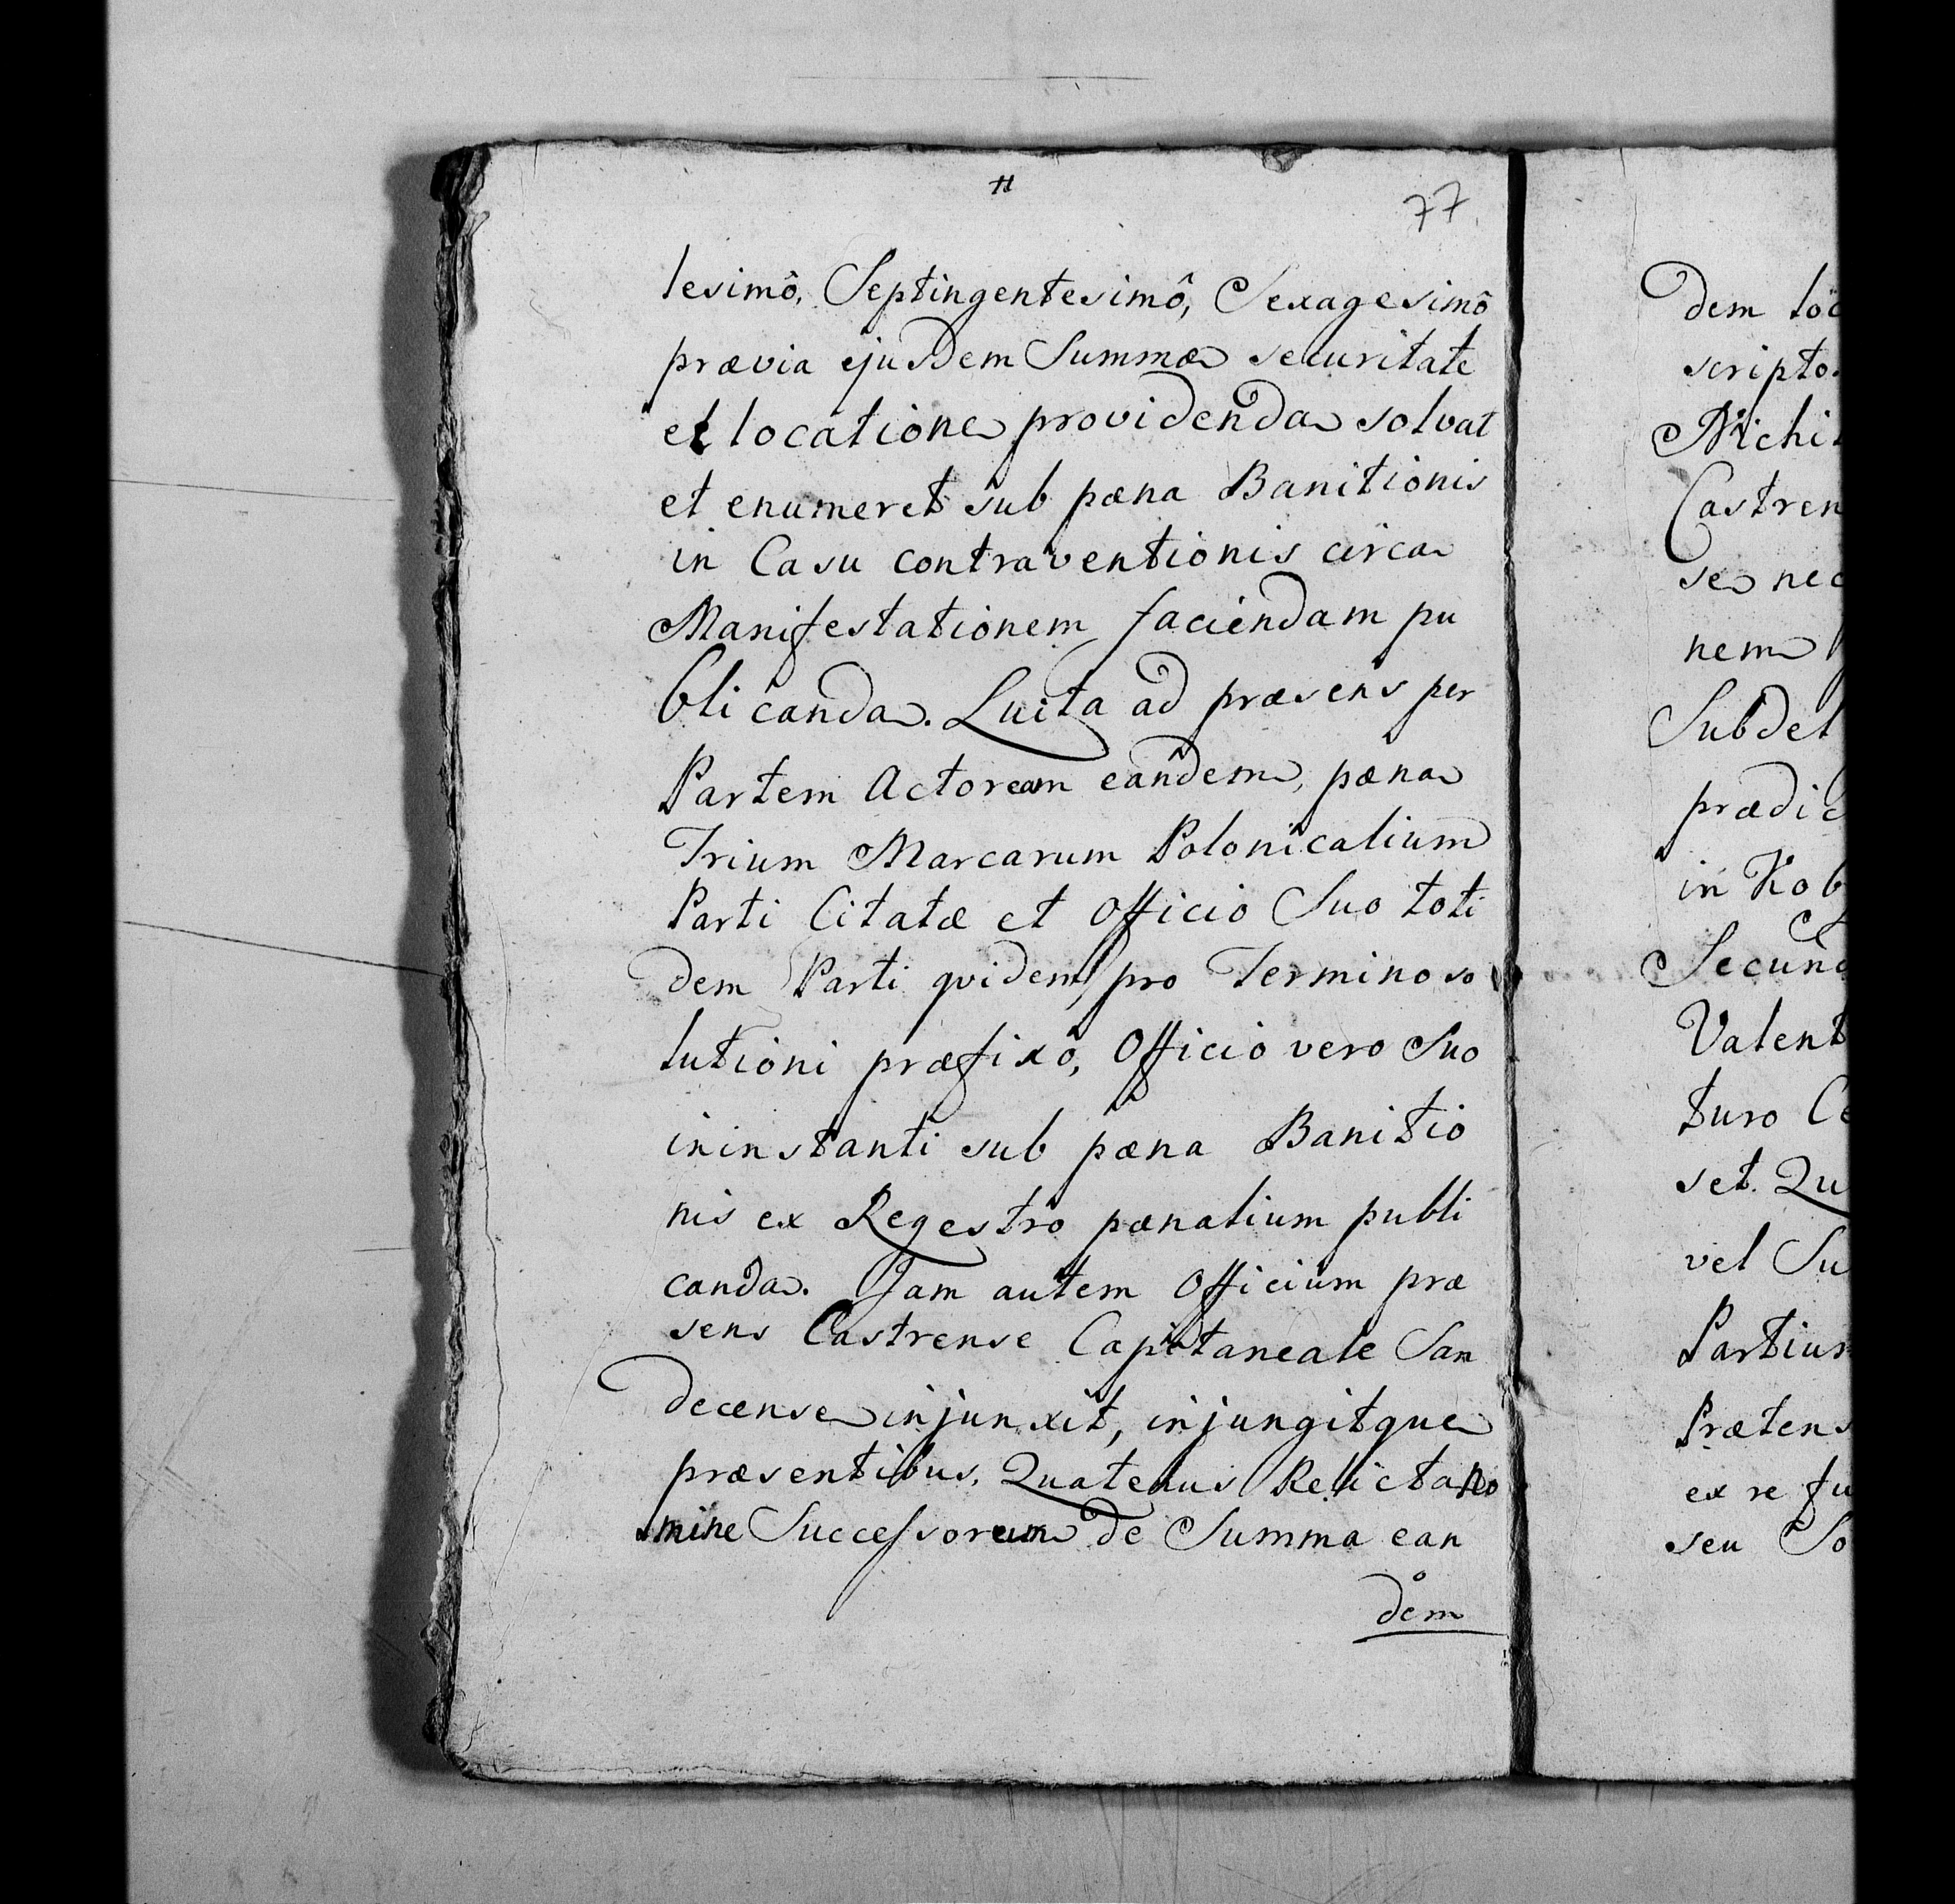 77
lesimô, Septingentesimô, Sexagesimô
prævia ejusdem Summæ securitate
et locatione providenda solvat
et enumeret sub pæna Banitionis
in Casu contraventionis circa
Manifestationem faciendam pu
blicanda. Luita ad præsens per
Partem Actoream eandem, pæna
Trium Marcarum Polonicalium
Parti Citatæ et Officio Suo toti
dem Parti qvidem pro Termino so
lutioni præfixô, Officio vero Suo
in instanti sub pæna Banitio
nis ex Regestro pænalium publi
canda. Jam autem Officium præ
sens Castrense Capitaneale San
decense injunxit, injungitque
præsentibus, Quatenus Relicta No
mine Successorum de Summa ean
dem
dem
scripto
Michi
Castren
se nec
nem
Subdel
prædic
in Kob
Secund
Valent
turo Ce
set. Qu
vel Su
Partium
Prætens
ex re fu
seu So